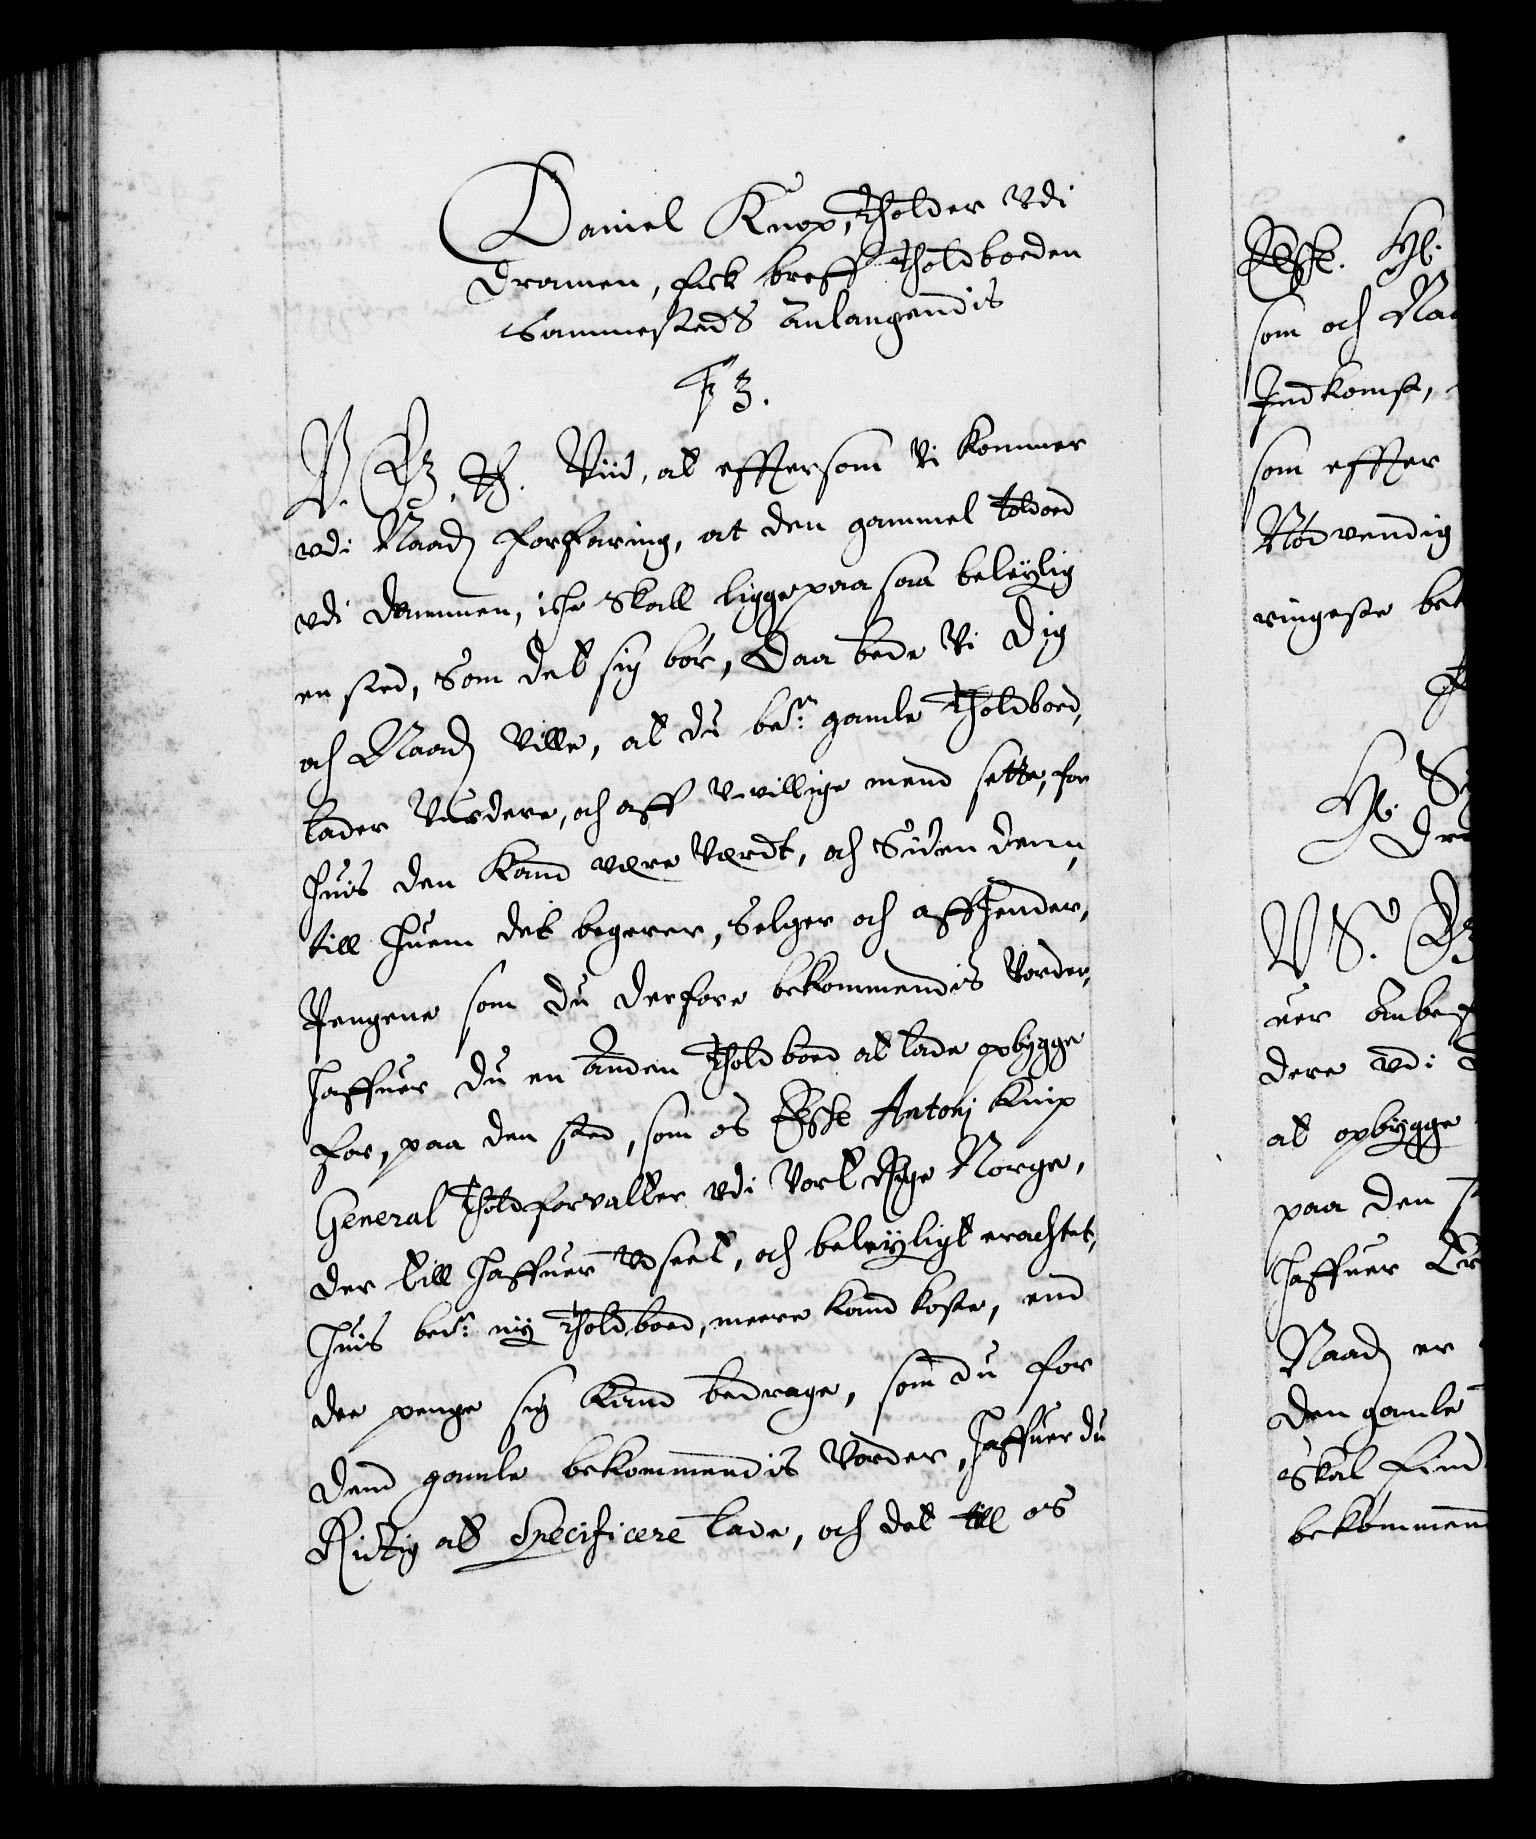 Daniel Knop, Tholder vdi
Dramen, fick breff Tholdboeden
Sammesteds Anlangendis
C 3.
V. G. T. Viid, at efftersom Vi kommer
vdi Naad. forfaring, at den gammel toldbod
vdi Drammen, iche Skall ligge paa saa beleylig
en sted, Som det sig bór, Daa bede Vi Dig
och Naad. Ville, at du bete. gamle Tholdboed,
lader Vurdere, och aff Uvillige mend sette, for
huis den Kand vere Verdt, och Siden denn,
till huem det begerer, Selger och affhender,
Pengene som du derfore bekommendis Vorder,
haffuer du en Anden Tholdboed at lade opbygge
for, paa den sted, som os Elske Antonj Knip
General Tholdforvalter vdi Vort Rige Norge,
der till haffuer Vdseet, och beleyligt erachtet,
Huis bete. ny Tholdboed, meere kand koste, end
dee penge sig kand bedrage, som du for
dend gamle bekommendis Vorder, haffuer du
Richtig at Specificere lade, och det till os
Elske. Hl.
som och Naa
Indkomst,
som effter
Nødvendig
ringeste bet
Hl. S
Dra
V S. G
uer Anbe
dere vdi
at opbygge
paa den st
haffuer Er
Naad. er
den gamle
Skal find
bekommen